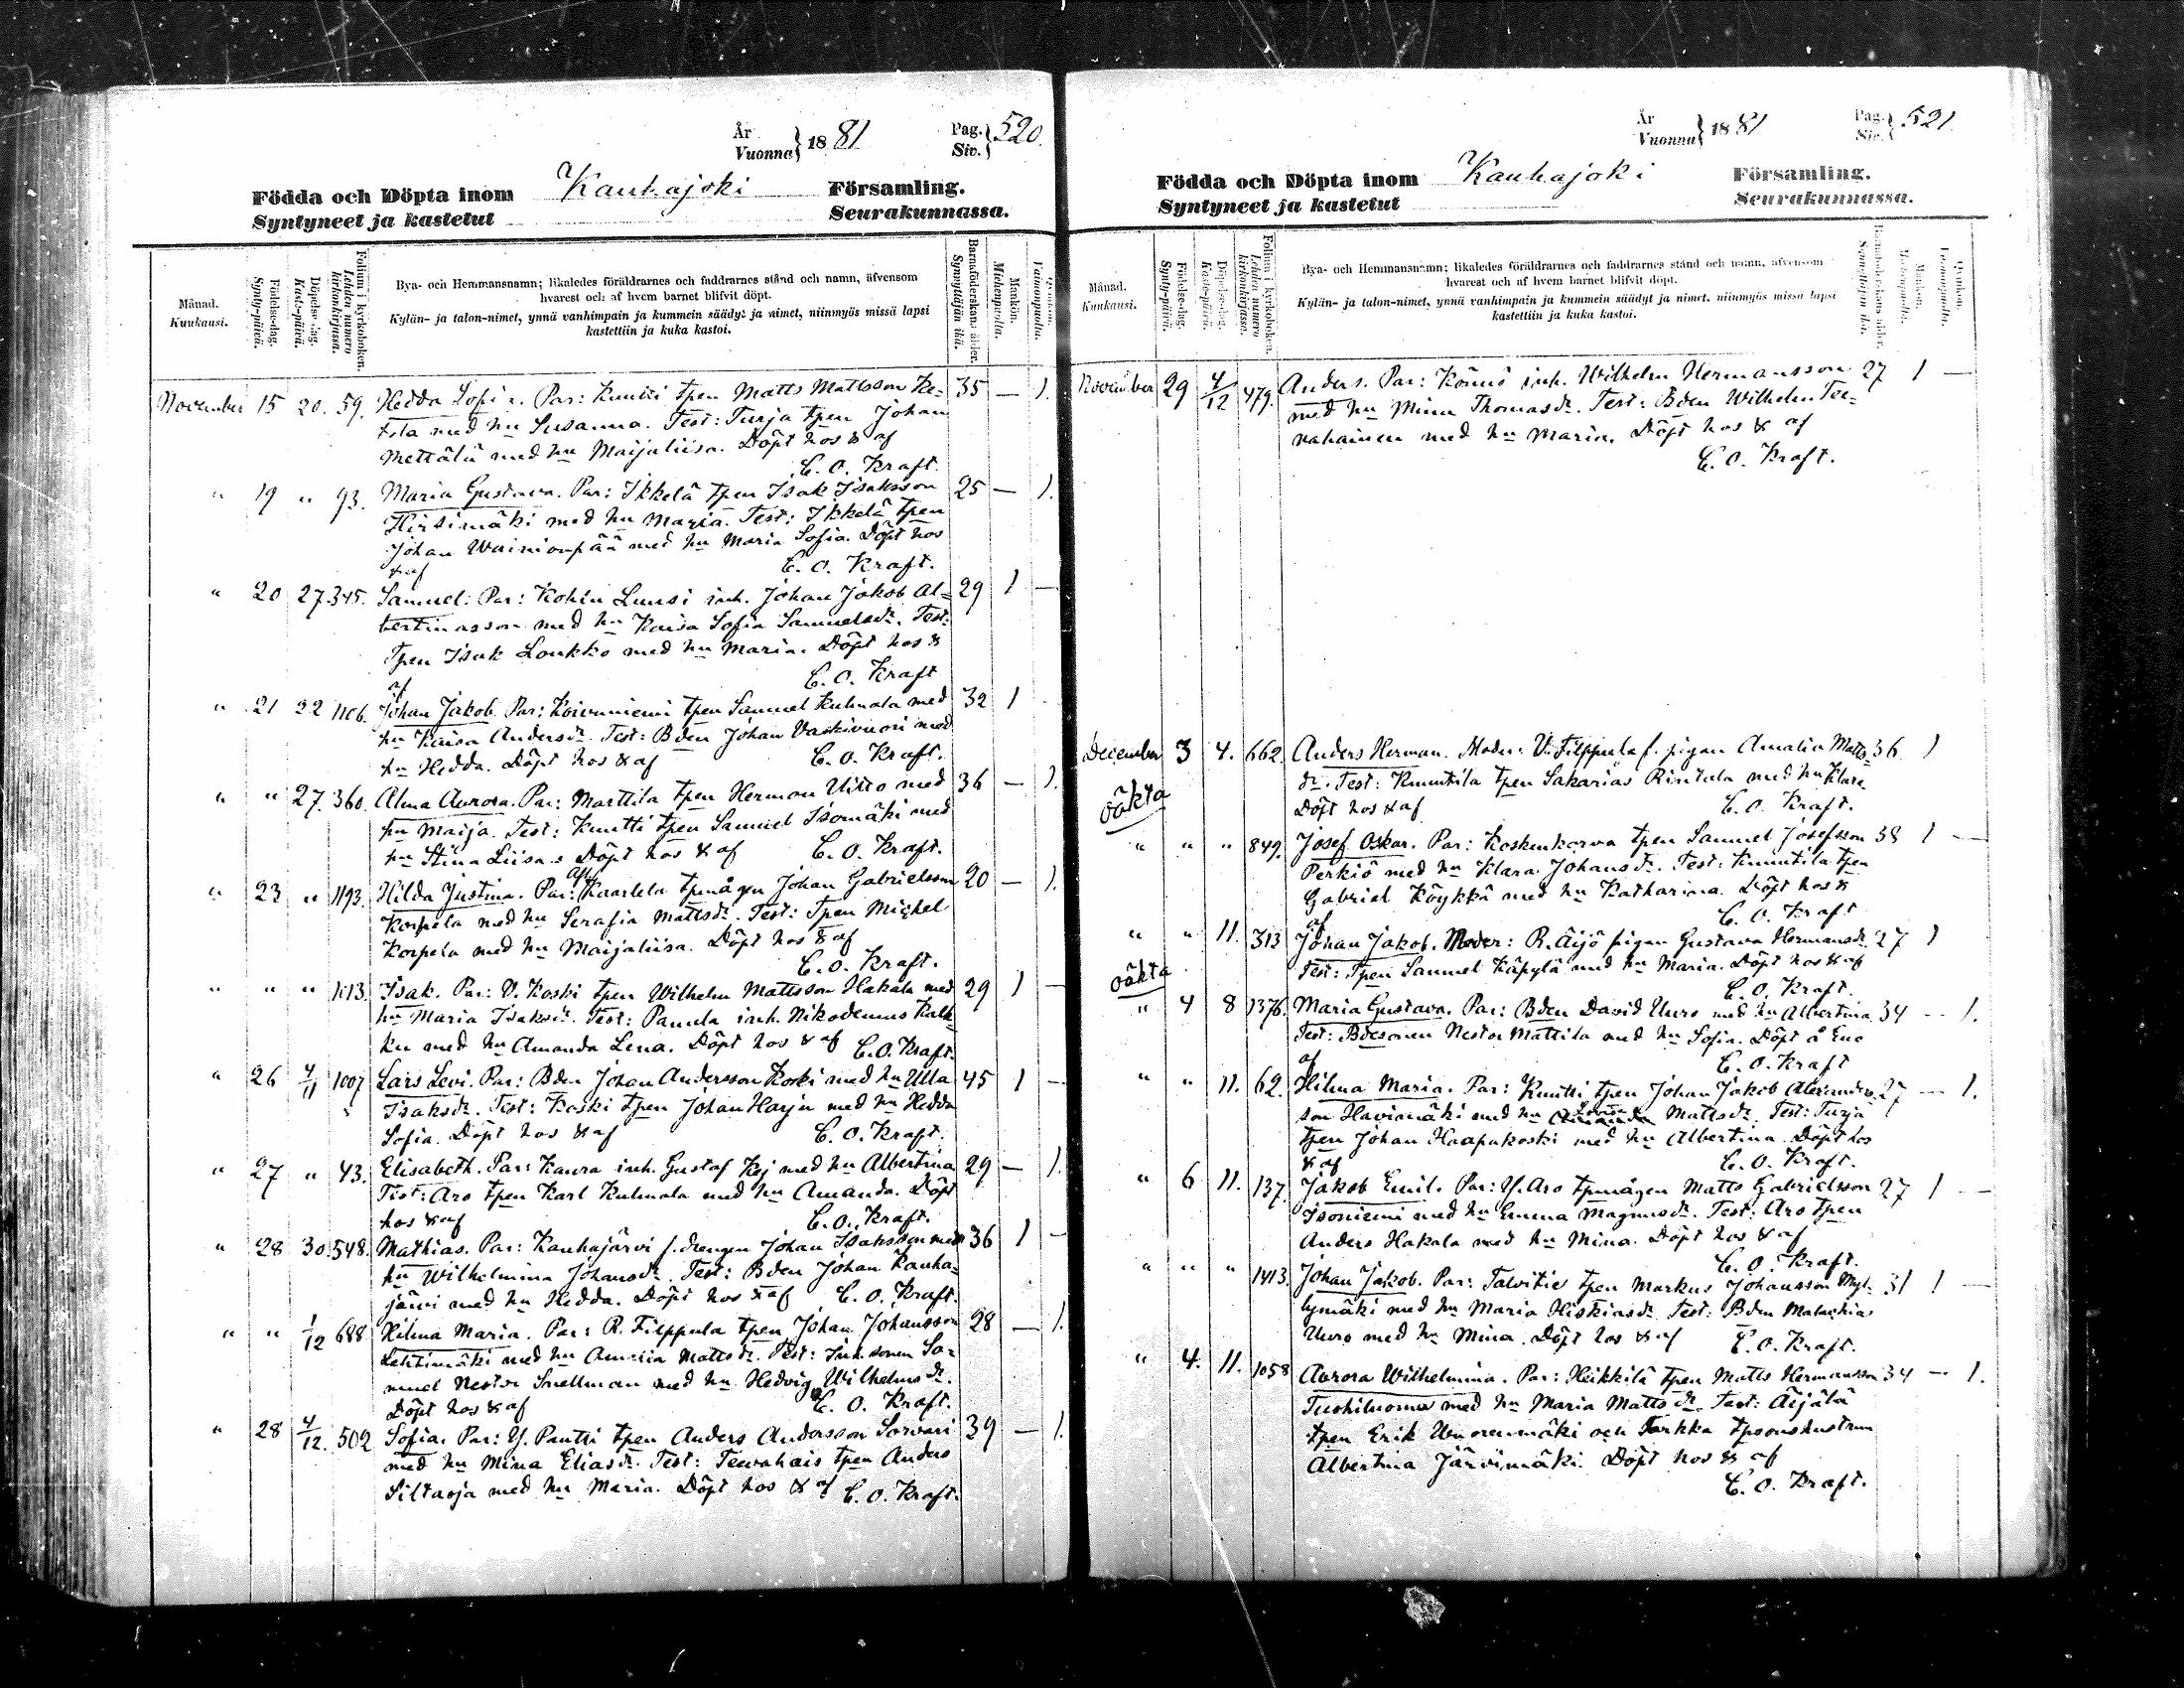 År
Vuonna } 1881
Pag.
Siv. } 520.
Födda och Döpta inom Kauhajoki Församling.
Syntyneet ja kastetut Seurakunnassa.
Månad.
Kuukausi.
Födelse-dag.
Synty-päivä.
Döpelse-dag.
Kaste-päivä.
Folium i kyrkoboken.
Lehden numero kirkonkirjassa.
Bya- och Hemmansnamn; likaledes föräldrarnes och faddrarnes stånd och namn, äfvensom
hvarest och af hvem barnet blifvit döpt.
Kylän- ja talon-nimet, ynnä vanhimpain ja kummein säädyt ja nimet, niinmyös missä lapsi
kastettiin ja kuka kastoi.
Barnaföderskans ålder.
Synnyttäjän ikä.
Mankön.
Miehenpuolta.
Qvinkön.
Vaimonpuolta.
November 15 20. 59. Hedda Sofia. Par: Knutti tpen Matts Mattsson Ke= 35 — 1.
tola med hu Susanna. Test: Turja tpen Johan
Mettälä med hu Maijaliisa. Döpt hos & af
C. O. Kraft.
" 19 " 93. Maria Gustava. Par: Ikkelä tpen Isak Isaksson 25 — 1.
Hirsimäki med hu Maria. Test: Ikkelä tpen
Johan Wainionpää med hu Maria Sofia. Döpt hos
& af C. O. Kraft.
" 20 27. 345. Samuel. Par: Kohlu Luusi inh. Johan Jakob Al= 29 1 —
bertinasson med hu Kaisa Sofia Samuelsdr. Test:
Tpen Isak Loukko med hu Maria. Döpt hos &
af C. O. Kraft
" 21 22 1106. Johan Jakob. Par: Koivuniemi tpen Samuel Kulmala med 32 1
hu Kaisa Andersdr. Test: Bden Johan Vaskivuori med
hu Hedda. Döpt hos & af C. O. Kraft.
" " 27. 360. Alma Aurora. Par: Marttila tpen Herman Uitto med 36 — 1.
hu Maija. Test: Knutti tpen Samuel Isomäki med
hu Stina Liisa. Döpt hos & af C. O. Kraft.
" 23 " 1193. Hilda Justina. Par: Kaarlela tpmågen Johan Gabrielsson 20 — 1.
Korpela med hu Serafia Mattsdr. Test: Tpen Michel
Korpela med hu Maijaliisa. Döpt hos & af
C. O. Kraft.
" " " 1113. Isak. Par: V. Koski tpen Wilhelm Mattsson Hakala med 29 1 —
hu Maria Isaksdr. Test: Panula inh. Nikodemus Kalk=
ku med hu Amanda Lena. Döpt hos & af C. O. Kraft.
" 26 4/11 1007 Lars Levi. Par: Bden Johan Andersson Koski med hu Ulla 45 1 —
Isaksdr. Test: Koski tpen Johan Harju med hu Hedda
Sofia. Döpt hos & af C. O. Kraft.
" 27 " 43. Elisabeth. Par: Kaura inh. Gustaf Kej med hu Albertina 29 — 1.
Test: Aro tpen Karl Kulmala med hu Amanda. Döpt
hos & af C. O. Kraft.
" 28 30 548. Mathias. Par: Kauhajärvi f. drengen Johan Isaksson med 36 1 —
hu Wilhelmina Johansdr. Test: Bden Johan Kauha=
järvi med hu Hedda. Döpt hos & af C. O. Kraft.
" " 1/12 688 Hilma Maria. Par: R. Filppula tpen Johan Johansson 28 — 1.
Lehtimäki med hu Amalia Mattsdr. Test: Inh. sonen Sa=
muel Nestor Snellman med hu Hedvig Wilhelmsdr.
Döpt hos & af C. O. Kraft.
" 28 4/12. 502 Sofia. Par: Y. Pantti tpen Anders Andersson Sorvari 39 — 1.
med hu Mina Eliasdr. Test: Teevahais tpen Anders
Siltaoja med hu Maria. Döpt hos & af C. O. Kraft.
År
Vuonna } 1881
Pag.
Siv. } 521
Födda och Döpta inom Kauhajoki Församling.
Syntyneet ja kastetut Seurakunnassa.
Månad.
Kuukausi.
Födelse-dag.
Synty-päivä.
Döpelse-dag.
Kaste-päivä.
Folium i kyrkoboken.
Lehden numero kirkonkirjassa.
Bya- och Hemmansnamn; likaledes föräldrarnes och faddrarnes stånd och namn, äfvensom
hvarest och af hvem barnet blifvit döpt.
Kylän- ja talon-nimet, ynnä vanhimpain ja kummein säädyt ja nimet, niinmyös missä lapsi
kastettiin ja kuka kastoi.
Barnaföderskans ålder.
Synnyttäjän ikä.
Mankön.
Miehenpuolta.
Qvinkön.
Vaimonpuolta.
November 29 4/12 479. Anders. Par: Könnö inh. Wilhelm Hermansson 27 1 —
med hu Mina Thomasdr. Test: Bden Wilhelm Tee=
vahainen med hu Maria. Döpt hos & af
C. O. Kraft.
December 3 4. 662. Anders Herman. Moder: V. Filppula f. pigan Amalia Matts= 36 1
oäkta dr. Test: Knuutila tpen Sakarias Rintala med hu Klara
Döpt hos & af C. O. Kraft.
" " " 849. Josef Oskar. Par: Koskenkorva tpen Samuel Josefsson 38 1 —
Perkiö med hu Klara Johansdr. Test: Knuutila tpen
Gabriel Köykkä med hu Katharina. Döpt hos &
af C. O. Kraft
" " 11. 313 Johan Jakob. Moder: R. Äijö pigan Gustava Hermansdr. 27 1
oäkta Test: Tpen Samuel Käpylä med hu Maria. Döpt hos & af
C. O. Kraft.
" 4 8 1376. Maria Gustava. Par: Bden David Uuro med hu Albertina. 34 — 1.
Test: Bdesonen Nestor Mattila med hu Sofia. Döpt å Uuro
af C. O. Kraft
" " 11. 62. Hilma Maria. Par: Knutti tpen Johan Jakob Alexanders= 27 — 1.
son Havimäki med hu Lovisa Mattsdr. Test: Turja
tpen Johan Haapakoski med hu Albertina. Döpt hos
& af C. O. Kraft.
" 6 11. 137. Jakob Emil. Par: Y. Aro tpmågen Matts Gabrielsson 27 1 —
Isoniemi med hu Emma Magnusdr. Test: Aro tpen
Anders Hakala med hu Mina. Döpt hos & af
C. O. Kraft.
" " " 1413. Johan Jakob. Par: Talvitie tpen Markus Johansson Myl= 31 1 —
lymäki med hu Maria Hiskiasdr. Test: Bden Malachias
Uuro med hu Mina. Döpt hos & af C. O. Kraft.
" 4. 11. 1058 Aurora Wilhelmina. Par: Heikkilä tpen Matts Hermansson 34 — 1.
Tuohiluoma med hu Maria Mattsdr. Test: Äijälä
tpen Erik Vuorenmäki och Tarkka tpsonshustrun
Albertina Järvimäki. Döpt hos & af
C. O. Kraft.